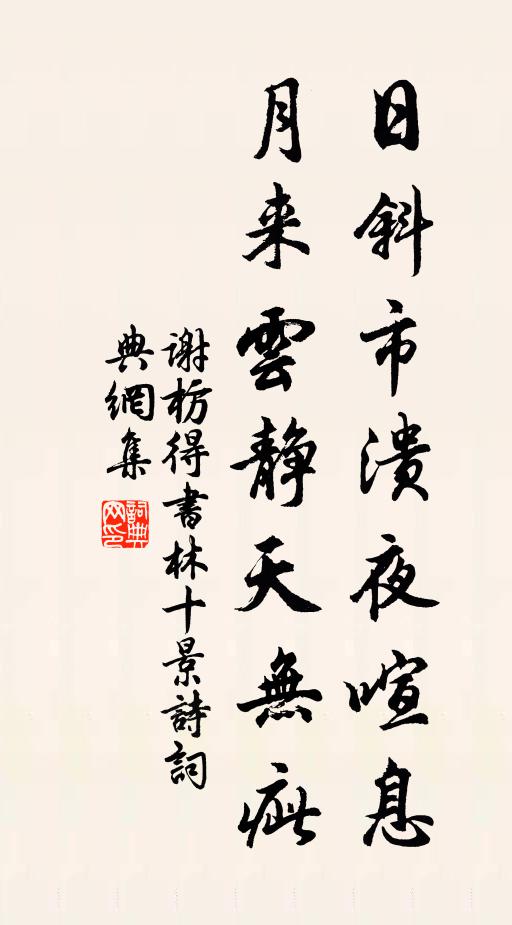 日斜市溃夜喧息
月来雲静天無疵
谢枋得書林十景詩詞
典網集
詞典网印